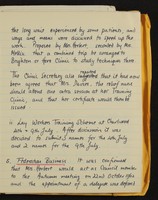 the long wait experienced by some patients, and
ways and means were discussed to speed up the
work. Proposed by Mrs Herbert, seconded by Mrs
that a combined trip be arranged to
Brighton or Hove Clinic to study technique there.
The Clinic Secretary also reported that it had now
been agreed that Mrs Davies, the relief nurse
should attend one extra session at her Training
Clinic, and that her certificate would then be
issued.
4 Lay Workers Training Scheme at
4th - 9th July. After discussion it was
decided to submit 1 name for the 4th July
and 2 names for the 9th July.
5. Federation Business It was confirmed
that Mrs Herbert would act as Panel member
to the Autumn meeting on 22nd October 1960
and the appointment of a delegate was deferred